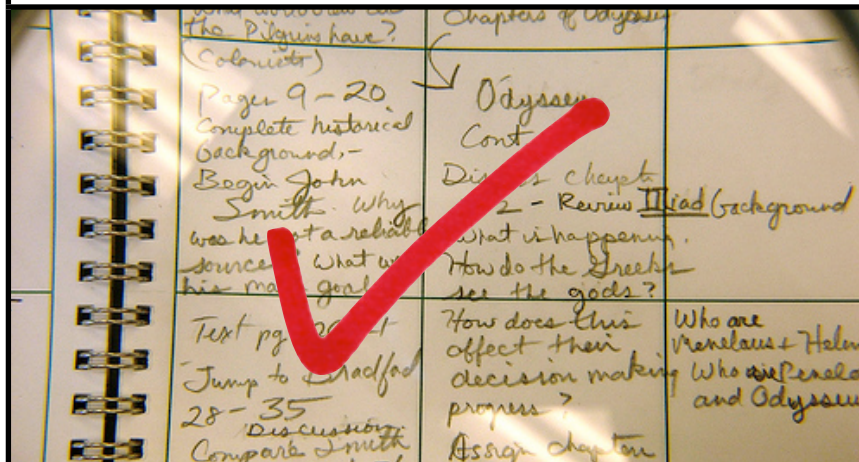 the Pilgrims have?
(Colonists)
Pages 9-20
Complete historical
background,-
Begin John
Smith. Why
was he not a reliable
source? What
his main goal
Text pg
Jump to Bradford
28-35
Discussion
Compare Smith
Chapters of Odyssey
Odyssey
Cont
Discuss chapt
2 - Review Iliad background
What is happening.
How do the Greeks
see the gods?
How does this
affect their
decision making
progress?
Assign chapters
Who are
Menelaus + Helen
Who are
and Odysseus